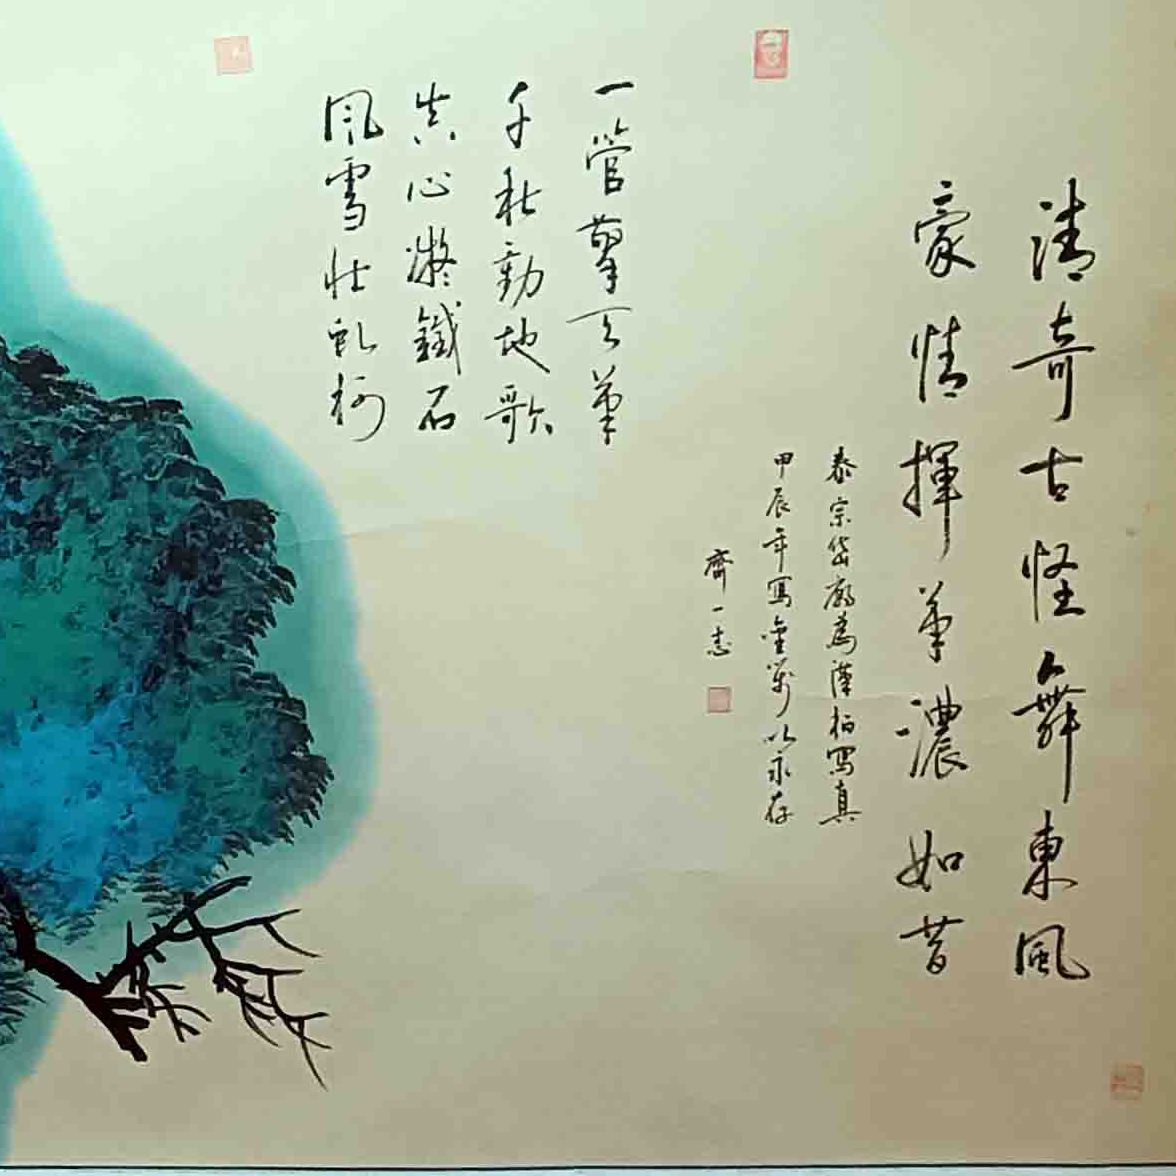 清奇古怪舞東風
豪情揮筆濃如昔
泰宗岱廟為漢柏寫真
甲辰年寫畫以永存
齊一志
一管擎天筆
千秋動地歌
共心凝鐵石
風雪壯虬柯